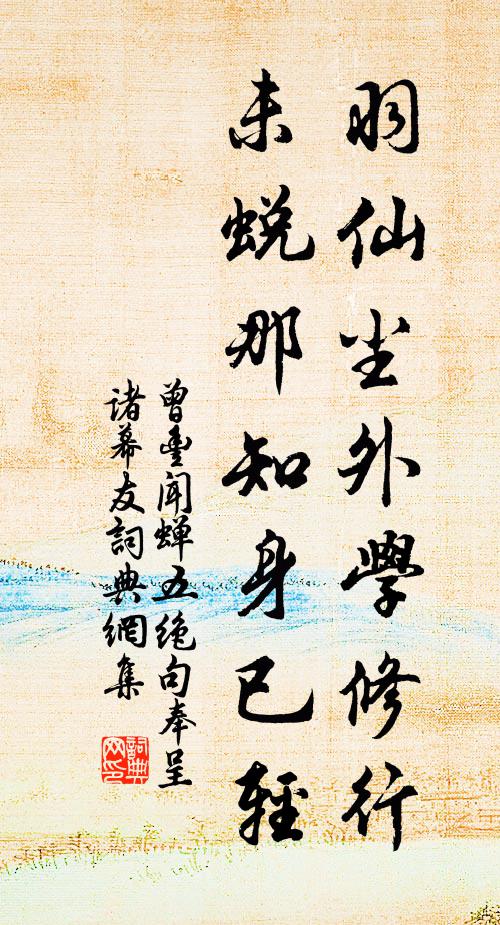 羽仙尘外學修行
未蜕那知身已輕
曾豊闻蝉五绝句奉呈
诸幕友詞典網集
詞典
网印